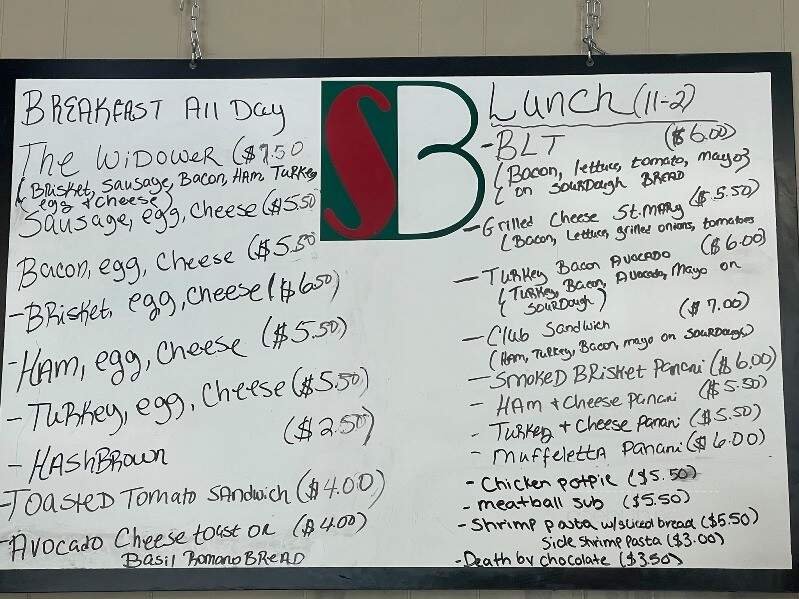 BREAKFAST All Day
The WiDOWER ($7.50
(BRisket, Sausage, Bacon, HAM, Turkey
egg & cheese)
Sausage, egg, cheese ($5.50)
Bacon, egg, cheese ($5.50
-BRisket, egg, cheese ($6.50)
-HAM, egg, cheese ($5.50)
-Turkey, egg, cheese ($5.50)
-HASHBROWN ($2.50)
-TOASTED Tomato SANdwich ($4.00)
-Avocado Cheese toast or ($4.00)
Basil Romano BREAD
SB
Lunch (11-2)
-BLT ($6.00)
(Bacon, lettuce, tomato, mayo}
( on SOURDough BREAD
-Grilled Cheese St. MARy ($5.50)
(Bacon, Lettuce, grilled onions, tomatoes
-Turkey Bacon Avocado ($6.00)
(Turkey, Bacon, Avocado, Mayo on
SOURDough)
-Club Sandwich ($7.00)
(HAm, Turkey, Bacon, mayo on SOURDough)
-Smoked BRisket Panani ($6.00)
-HAm + cheese Panani ($5.50)
-Turkey + Cheese Panani ($5.50)
-Muffeletta Panani ($6.00)
-Chicken potpie ($5.50)
-meatball sub ($5.50)
-Shrimp pasta w/sliced bread ($5.50)
Side Shrimp Pasta ($3.00)
-Death by chocolate ($3.50)